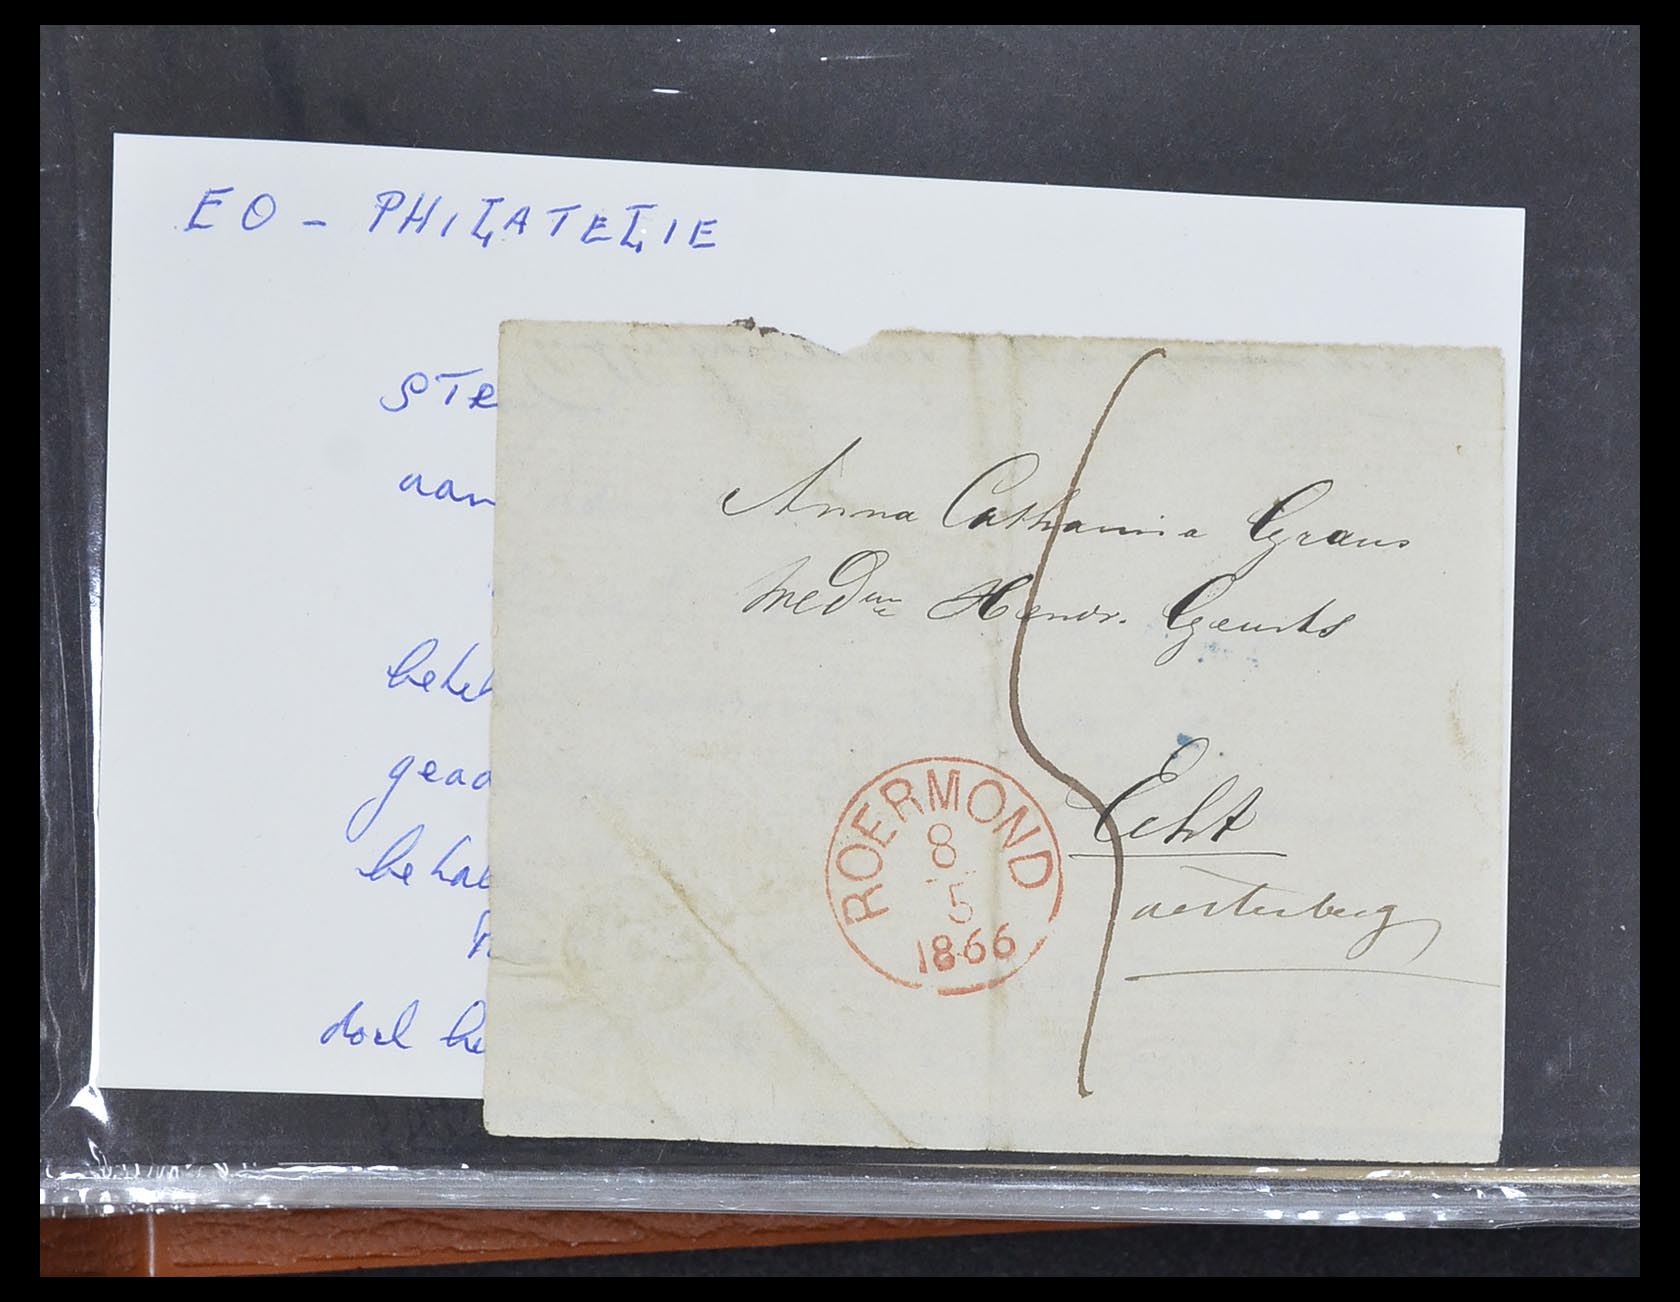 EO - PHILATELIE
STR
aan
behel
gead
behal
doel be
Anna Catharina Graus
Hendr. Geurts
Echt
ROERMOND
8
5
1866